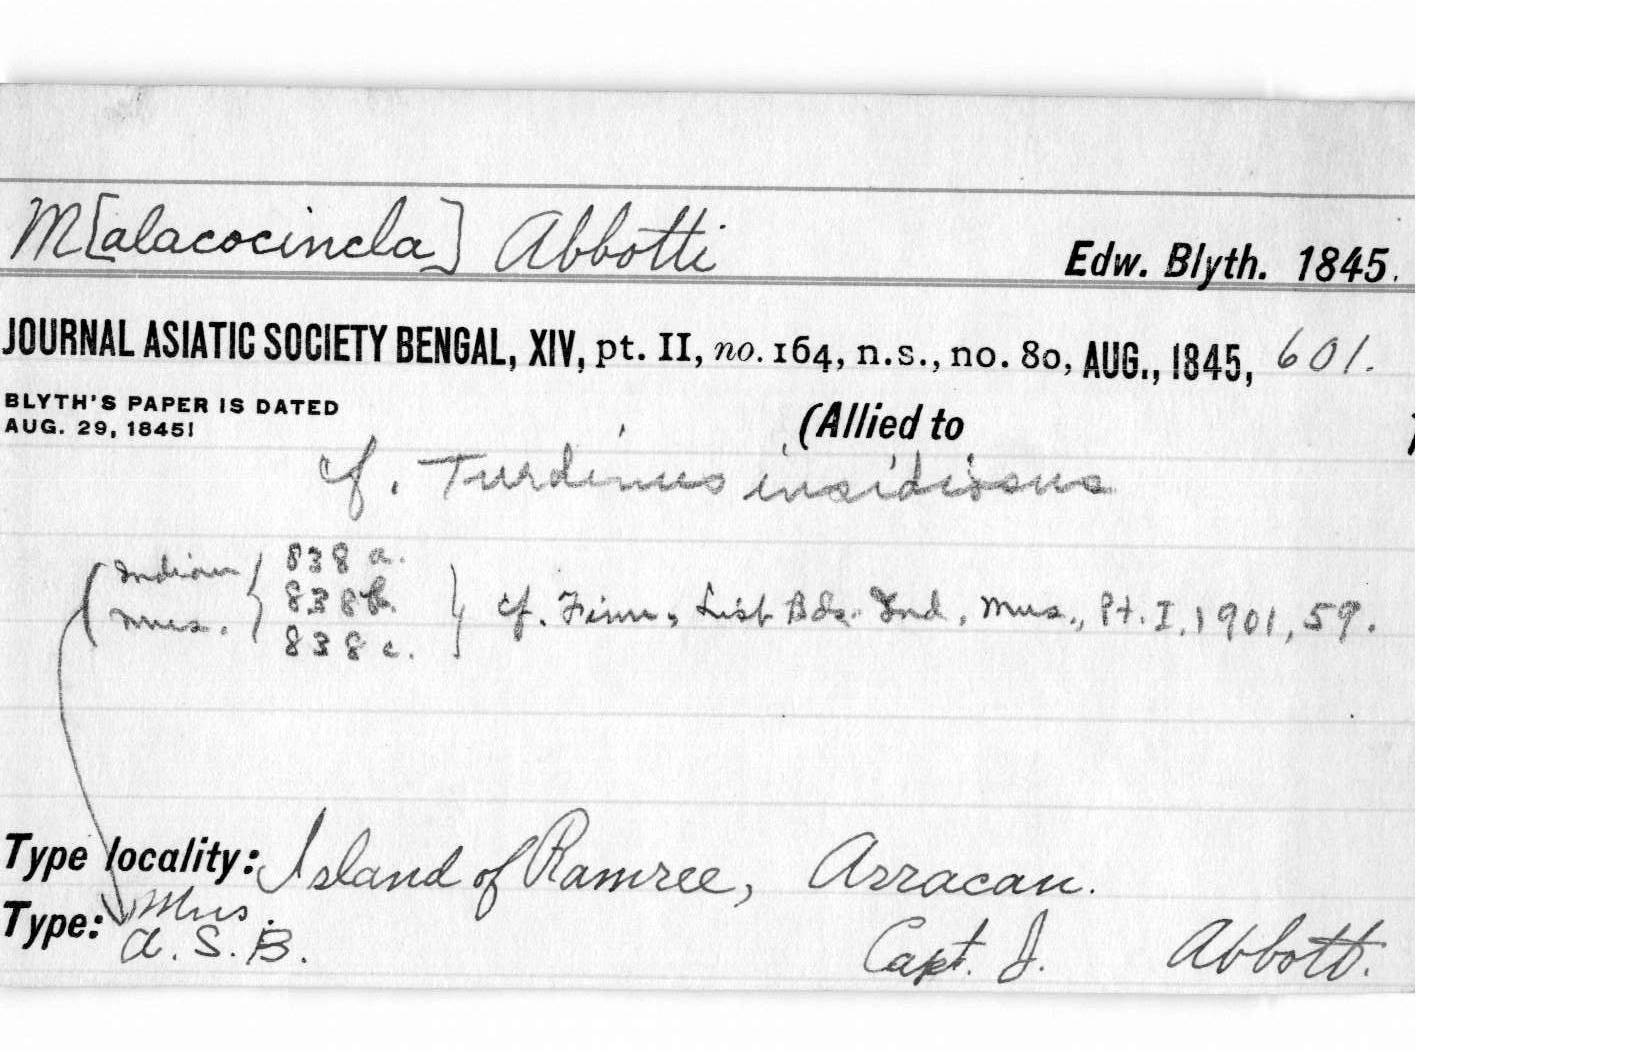 M[alacocincla] Abbotti
Edw. Blyth. 1845.
JOURNAL ASIATIC SOCIETY BENGAL, XIV, pt. II, no. 164, n.s., no. 80, AUG., 1845, 601.
BLYTH'S PAPER IS DATED
AUG. 29, 1845!
(Allied to )
cf. Turdinus insidiosus
(Indian { 838 a.
838 b. } cf. Finn, List Bds. Ind. Mus., Pt. I, 1901, 59.
Mus. 838 c.
Type locality: Island of Ramree, Arracan.
Type: Mus.
A.S.B.
Capt. J. Abbott.